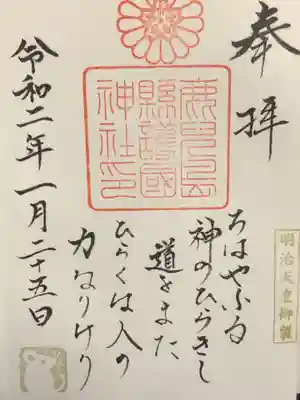 奉拝
明治天皇御製
ちはやふる
神のひらきし
道をまた
ひらくは人の
力なりけり
鹿兒島
縣護國
神社印
令和二年一月二十五日